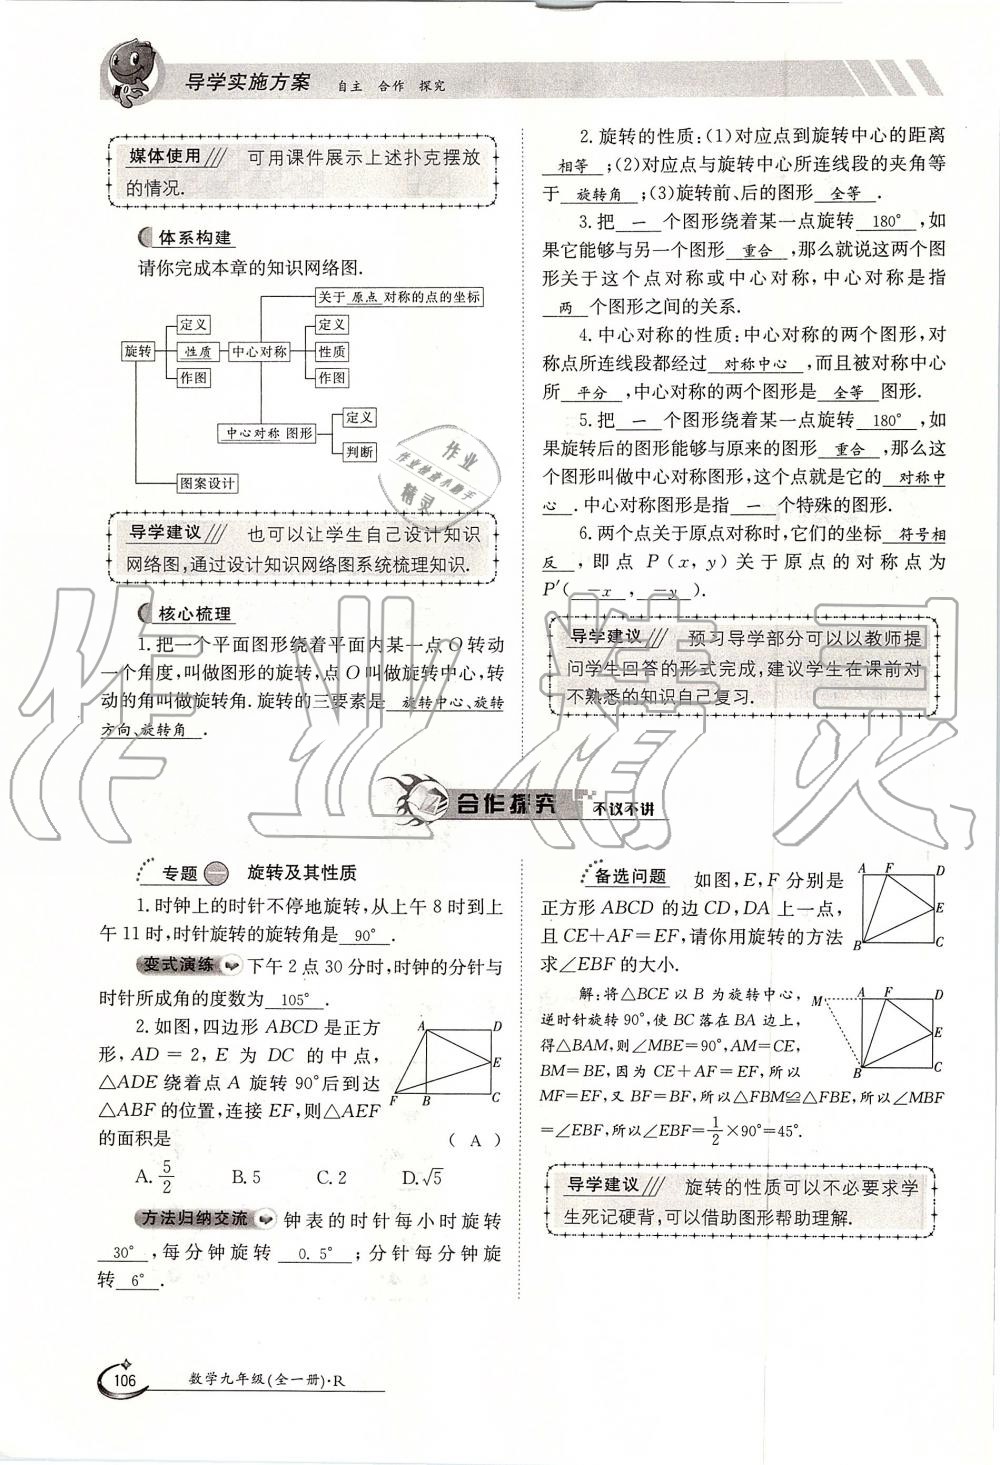 导学实施方案 自主 合作 探究
媒体使用 可用课件展示上述扑克摆放
的情况.
体系构建
请你完成本章的知识网络图.
关于 原点 对称的点的坐标
定义 定义
旋转 性质 中心对称 性质
作图 作图
定义
中心对称 图形
判断
图案设计
导学建议 也可以让学生自己设计知识
网络图,通过设计知识网络图系统梳理知识.
核心梳理
1.把一个平面图形绕着平面内某一点O转动
一个角度,叫做图形的旋转,点O叫做旋转中心,转
动的角叫做旋转角.旋转的三要素是 旋转中心、旋转
方向、旋转角 .
2.旋转的性质:(1)对应点到旋转中心的距离
相等 ;(2)对应点与旋转中心所连线段的夹角等
于 旋转角 ;(3)旋转前、后的图形 全等 .
3.把 一 个图形绕着某一点旋转 180° ,如
果它能够与另一个图形 重合 ,那么就说这两个图
形关于这个点对称或中心对称,中心对称是指
两 个图形之间的关系.
4.中心对称的性质:中心对称的两个图形,对
称点所连线段都经过 对称中心 ,而且被对称中心
所 平分 ,中心对称的两个图形是 全等 图形.
5.把 一 个图形绕着某一点旋转 180° ,如
果旋转后的图形能够与原来的图形 重合 ,那么这
个图形叫做中心对称图形,这个点就是它的 对称中
心 .中心对称图形是指 一 个特殊的图形.
6.两个点关于原点对称时,它们的坐标 符号相
反 ,即点P(x,y)关于原点的对称点为
P′( −x , −y ).
导学建议 预习导学部分可以以教师提
问学生回答的形式完成,建议学生在课前对
不熟悉的知识自己复习.
作业
作业检查小助手
精灵
作业精灵
合作探究 不议不讲
专题一 旋转及其性质
1.时钟上的时针不停地旋转,从上午8时到上
午11时,时针旋转的旋转角是 90° .
变式演练 下午2点30分时,时钟的分针与
时针所成角的度数为 105° .
2.如图,四边形ABCD是正方
形,AD=2,E为DC的中点,
△ADE绕着点A旋转90°后到达
△ABF的位置,连接EF,则△AEF
的面积是 ( A )
A D
E
F B C
A. 5/2 B.5 C.2 D.√5
方法归纳交流 钟表的时针每小时旋转
30° ,每分钟旋转 0.5° ;分针每分钟旋
转 6° .
备选问题 如图,E,F分别是
正方形ABCD的边CD,DA上一点,
且CE+AF=EF,请你用旋转的方法
求∠EBF的大小.
A F D
E
B C
解:将△BCE以B为旋转中心,
逆时针旋转90°,使BC落在BA边上,
得△BAM,则∠MBE=90°,AM=CE,
BM=BE,因为CE+AF=EF,所以
MF=EF,又BF=BF,所以△FBM≌△FBE,所以∠MBF
=∠EBF,所以∠EBF=1/2×90°=45°.
M A F D
E
B C
导学建议 旋转的性质可以不必要求学
生死记硬背,可以借助图形帮助理解.
106 数学九年级(全一册)·R